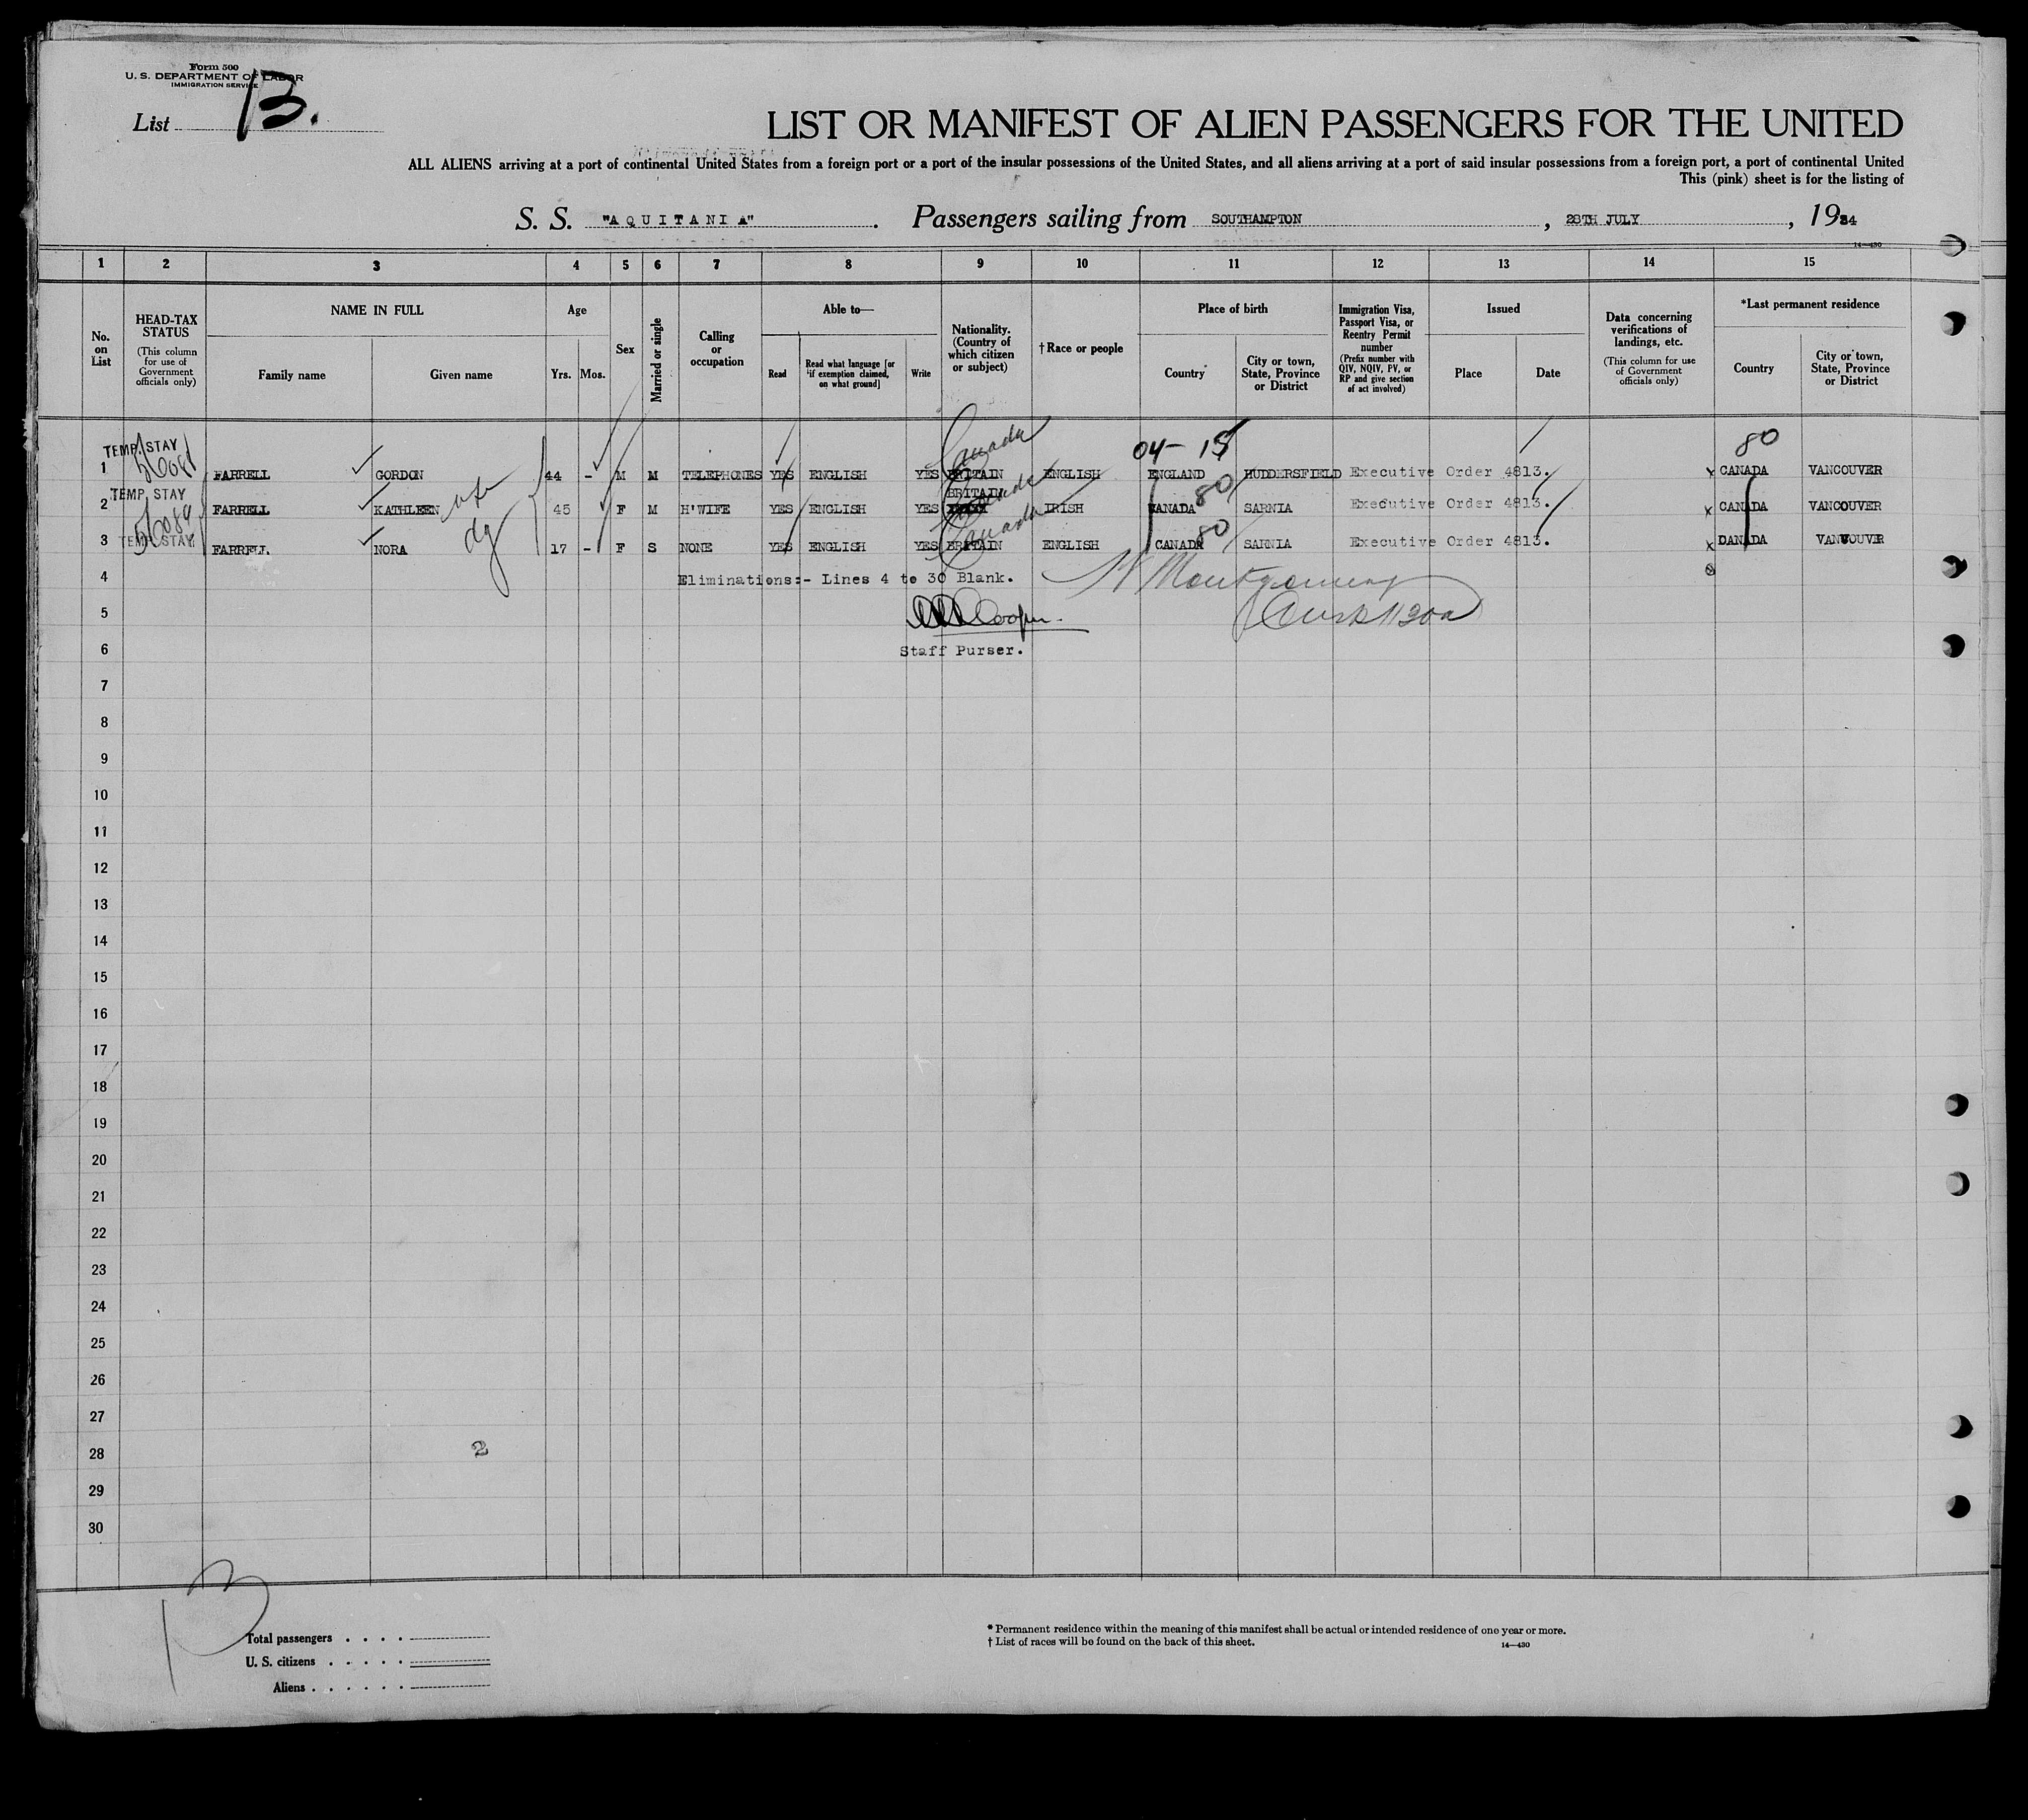 Form 500
U. S. DEPARTMENT OF LABOR
IMMIGRATION SERVICE
List 13.
LIST OR MANIFEST OF ALIEN PASSENGERS FOR THE UNITED
ALL ALIENS arriving at a port of continental United States from a foreign port or a port of the insular possessions of the United States, and all aliens arriving at a port of said insular possessions from a foreign port, a port of continental United
This (pink) sheet is for the listing of
S. S. "AQUITANIA". Passengers sailing from SOUTHAMPTON, 28TH JULY, 1934
14—430
1 2 3 4 5 6 7 8 9 10 11 12 13 14 15
No. on List
HEAD-TAX STATUS (This column for use of Government officials only)
NAME IN FULL
Family name Given name
Age
Yrs. Mos.
Sex
Married or single
Calling or occupation
Able to—
Read Read what language [or if exemption claimed, on what ground] Write
Nationality. (Country of which citizen or subject)
† Race or people
Place of birth
Country City or town, State, Province or District
Immigration Visa, Passport Visa, or Reentry Permit number (Prefix number with QIV, NQIV, PV, or RP and give section of act involved)
Issued
Place Date
Data concerning verifications of landings, etc. (This column for use of Government officials only)
*Last permanent residence
Country City or town, State, Province or District
Canada 04- 15 80
TEMP. STAY
1 FARRELL GORDON 44 - M M TELEPHONES YES ENGLISH YES BRITAIN ENGLISH ENGLAND HUDDERSFIELD Executive Order 4813. x CANADA VANCOUVER
TEMP. STAY wife Canada BRITAIN 80
2 FARRELL KATHLEEN 45 F M H'WIFE YES ENGLISH YES IRISH CANADA SARNIA Executive Order 4813. x CANADA VANCOUVER
56089
TEMP. STAY dg Canada 80
3 FARRELL NORA 17 - F S NONE YES ENGLISH YES BRITAIN ENGLISH CANADA SARNIA Executive Order 4813. x DANADA VANVOUVR
4 Eliminations:- Lines 4 to 30 Blank. Montgomery
5 Cooper.
6 Staff Purser.
7
8
9
10
11
12
13
14
15
16
17
18
19
20
21
22
23
24
25
26
27
28 2
29
30
13
Total passengers
U. S. citizens
Aliens
* Permanent residence within the meaning of this manifest shall be actual or intended residence of one year or more.
† List of races will be found on the back of this sheet.
14—430